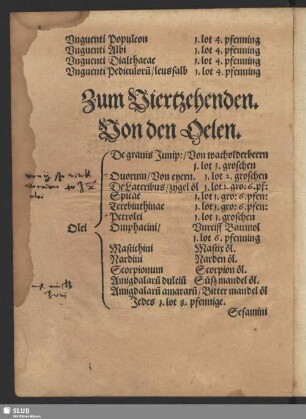 Vnguenti Populeon 1. lot 4. pfenning
Vnguenti Albi 1. lot 4. pfenning
Vnguenti Dialthaeae 1. lot 4. pfenning
Vnguenti Pediculorũ/leusfalb 1. lot 4. pfenning
Zum Viertzehenden.
Von den Oelen.
De granis Junip:/Von wacholderbeern
1. lot 3. groschen
Ouorum/Von eyern. 1. lot 2. groschen
De Lateribus/zygel öl 1. lot 1. gro: 6. pf:
Spicae 1. lot 1. gro: 6. pfen:
Terebinthinae 1. lot 1. gro: 6. pfen:
Petrolei 1. lot 1. groschen
Olei
Omphacini/ Vnreiff Baumol
1. lot 6. pfenning
Mastichini Mastix öl.
Nardini Narden öl.
Scorpionum Scorpion öl.
Amigdalarũ dulciũ Süß mandel öl.
Amigdalarũ amararũ/Bitter mandel öl
Jedes 1. lot 8. pfennige.
Sesamini
SLUB
Wir führen Wissen.